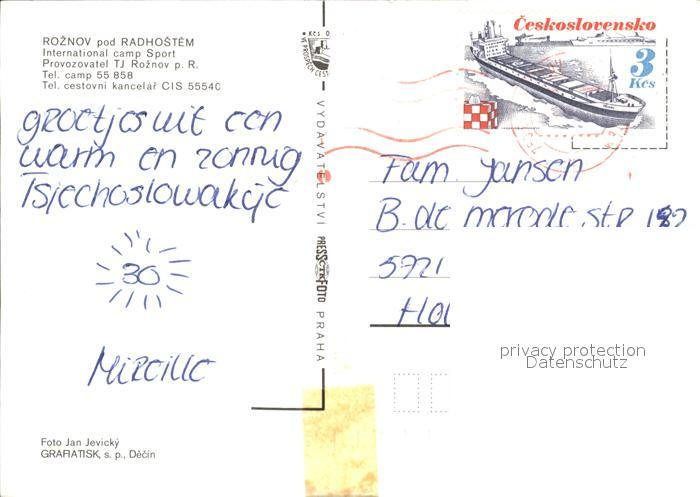 ROŽNOV pod RADHOŠTĚM
International camp Sport
Provozovatel TJ Rožnov p. R.
Tel. camp 55 858
Tel. cestovní kancelář CIS 55540
groetjes uit een
warm en zonnig
Tsjechoslowakije
30
Mireille
Foto Jan Jevický
GRAFIATISK, s. p., Děčín
Kčs 0
VYDAVATELSTVÍ PRESSFOTO PRAHA
Československo
3
Kčs
Fam. Jansen
B. de merode str
5721
Hol
privacy protection
Datenschutz